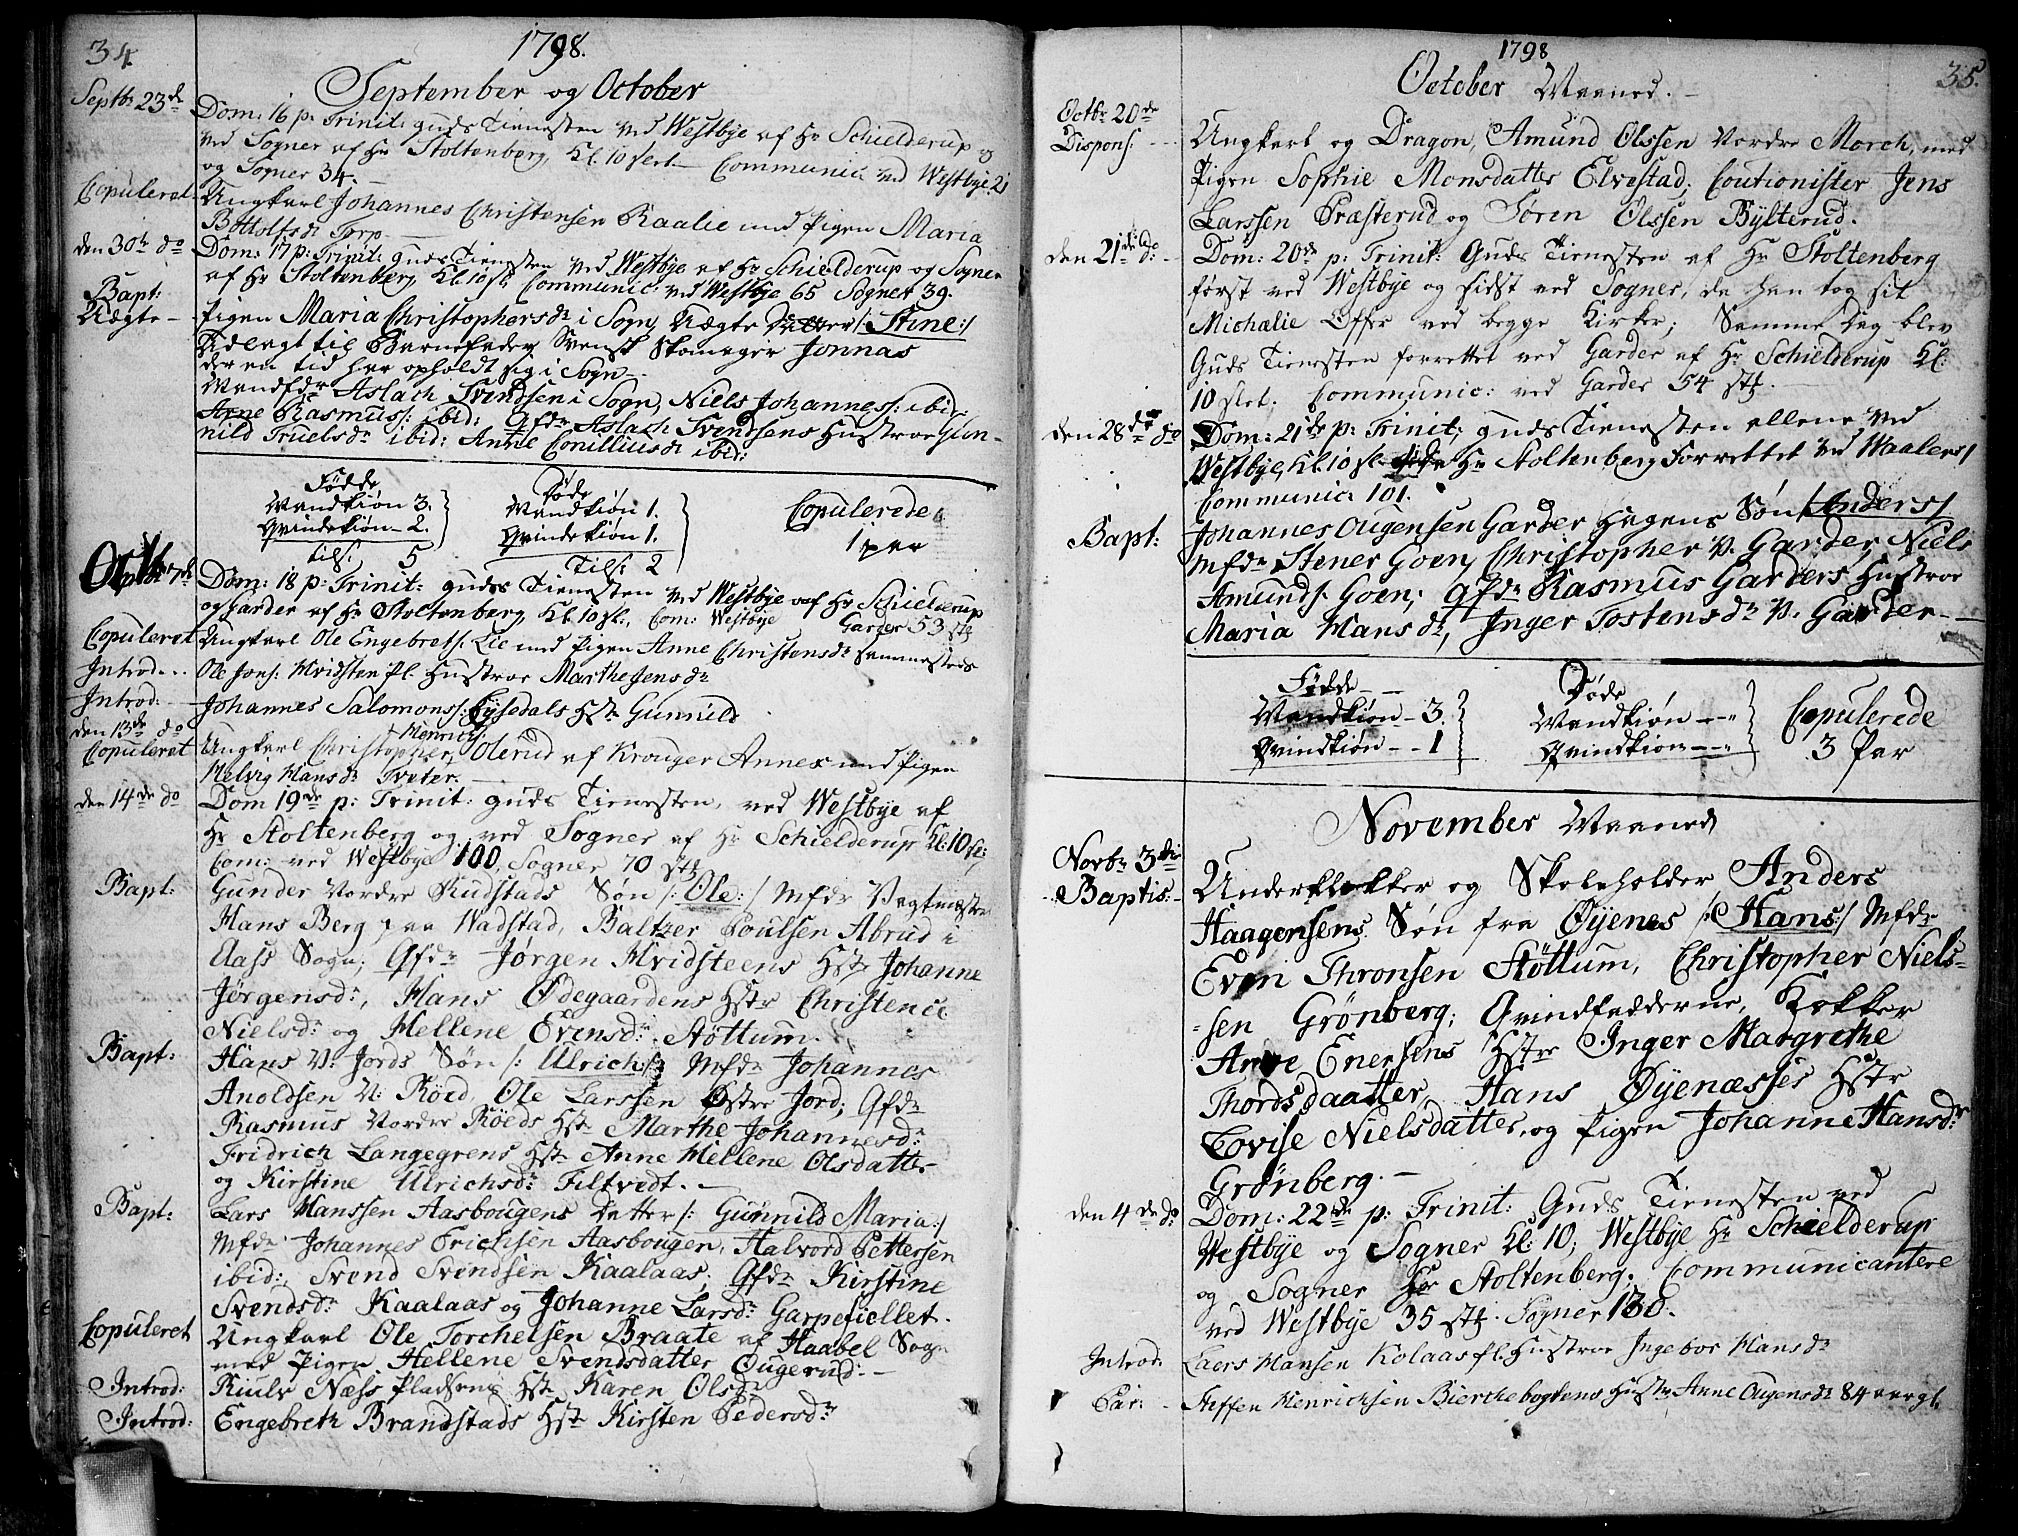 34
1798.
September og October
Septb: 23de
Dom: 16 p: Trinit: Guds Tienesten ved Westbye af Hr Schielderup og
ved Sogner af Hr Stoltenberg, Kl. 10 slet. — Communic: ved Westbye 21
og Sogner 34. —
Copuleret
Ungkarl Johannes Christensen Raalie med Pigen Maria
Bottolfsdr Torp. —
den 30te do
Dom: 17 p: Trinit: Guds Tienesten ved Westbye af Hr Schielderup og Sogner
af Hr Stoltenberg, Kl. 10 sl. Communic: ved Westbye 65 Sogner 39.
Bapt:
Uægte —
Pigen Maria Christophersdr i Sogn, Uægte Datter /: Stine :/
Udlagt til Barnefader Svensk Skomager Jonnas
der en tid har opholdt sig i Sogn —
Mandfdr Aslach Svendsen i Sogn, Niels Johannes: ibid
Arne Rasmuss: ibid: Qfdr Aslach Svendsens Hustroe Gun-
nild Truelsdr ibid: Antie Conilliusdr ibid:
Fødde
Mandkiøn 3.
Qvindekiøn — 2.
Tils: 5
Døde
Mandkiøn 1.
Qvindekiøn 1.
Tils: 2
Copulerede
1 par
Octbr 7de
Dom: 18 p: Trinit: Guds Tienesten ved Westbye af Hr Schielderup
og Garder af Hr Stoltenberg, Kl. 10 sl., Com: Westbye Garder 53 stk
Copuleret
Ungkarl Ole Engebrets: Lie med Pigen Anne Christensdr sammesteds
Introd...
Ole Jons: Hvidsten Pl. Hustroe Marthe Jensdr
Introd: -
Johannes Salomons: Lysedals Hstr Gunnild
den 13de do
Copuleret
Ungkarl Christopher Henrics: Olerud af Krouger Annex med Pigen
Helvig Hansdr Tveter. —
den 14de do
Dom 19de p: Trinit: Guds Tienesten, ved Westbye af
Hr Stoltenberg og ved Sogner af Hr Schielderup Kl: 10 sl:
Com: ved Westbye 100, Sogner 70 stk
Bapt:
Gunder Nordre Rudstads Søn /: Ole :/ Mfdr Vagtmester
Hans Berg paa Wadstad, Baltzer Poulsen Abrud i
Aass Sogn; Qfdr Jørgen Hvidsteens Hstr Johanne
Jørgensdr, Hans Ødegaardens Hstr Christence
Nielsdr: og Hellene Evensdr: Støttum.
Bapt:
Hans V: Jords Søn /: Ulrich :/ Mfdr Johannes
Anoldsen N: Röed, Ole Larssen Østre Jord; Qfdr
Rasmus Nordre Röeds Hstr Marthe Johannesdr:
Fridrich Langegrens Hstr Anne Hellene Olsdatter
og Kirstine Ulrichsdr: Filtvedt. —
Bapt:
Lars Hanssen Aasbougens Datter /: Gunnild Maria :/
Mfdr Johannes Erichsen Aasbougen, Halvord Pettersen
ibid:, Svend Svendsen Kaalaas; Qfdr Kirstine
Svendsdr: Kaalaas og Johanne Larsdr: Garpefiellet.
Copuleret
Ungkarl Ole Torchelsen Braate af Haabel Sogn
med Pigen Hellene Svendsdatter Ougerud: —
Introd:
Riulv Næss Pladsens Hstr Karen Olsdr
Introd:
Engebreth Brandstads Hstr Kirsten Pedersdr
1798
35.
October Maaned. —
Octbr 20de
Dispens: - - -
Ungkarl og Dragon, Amund Olssen Nordre Morch, med
Pigen Sophie Monsdatter Elvestad; Coutionister Jens
Larssen Præsterud og Søren Olssen Bylterud.
den 21de do: -
Dom: 20de p: Trinit: Guds Tienesten af Hr Stoltenberg
først ved Westbye og sidst ved Sogner, da han tog sit
Michalie Offer ved begge Kirker; Samme Dag blev
Guds Tienesten forrettet ved Garder af Hr Schielderup Kl:
10 slet; Communic: ved Garder 54 stk. —
den 28de do
Dom: 21de p: Trinit: Guds Tienesten allene ved
Westbye, Kl. 10 sl. Hr Stoltenberg Forrettet ved Waaler
Communic: 101.
Bapt:
Johannes Ougensen Garder Hagens Søn /: Anders :/
Mfdr Stener Goen, Christopher V. Garder, Niels
Amunds: Goen; Qfdr Rasmus Garders Hustroe
Maria Hansdr, Inger Tostensdr V. Garder —
Fødde — —
Mandkiøn — 3.
Qvindkiøn — — 1
Døde
Mandkiøn — — "
Qvindkiøn — — "
Copulerede
3 Par
November Maaned
Novbr 3die
Baptis: -
Underklokker og Skoleholder Anders
Haagensens Søn fra Øyenes /: Hans :/ Mfdr
Even Thronsen Støttum, Christopher Niels-
-sen Grönberg; Qvindfadderne, Klokker
Arne Enersens Hstr Inger Margrethe
Thordsdaatter, Hans Øyenæsses Hstr
Lovise Nielsdatter, og Pigen Johanne Hansdr
Grönberg. —
den 4de do:
Dom: 22de p: Trinit: Guds Tienesten ved
Westbye og Sogner Kl: 10, Westbye Hr Schielderup
og Sogner Hr Stoltenberg; Communicantere
ved Westbye 35 stk. Sogner 130.
Introd:
Laers Hansen Kolaas Pl. Hustroe Ingebor Hansdr
Par: -
Steffen Henrichsen Bierchebogtens Hustr: Anne Ougensdr 84 aar gl.